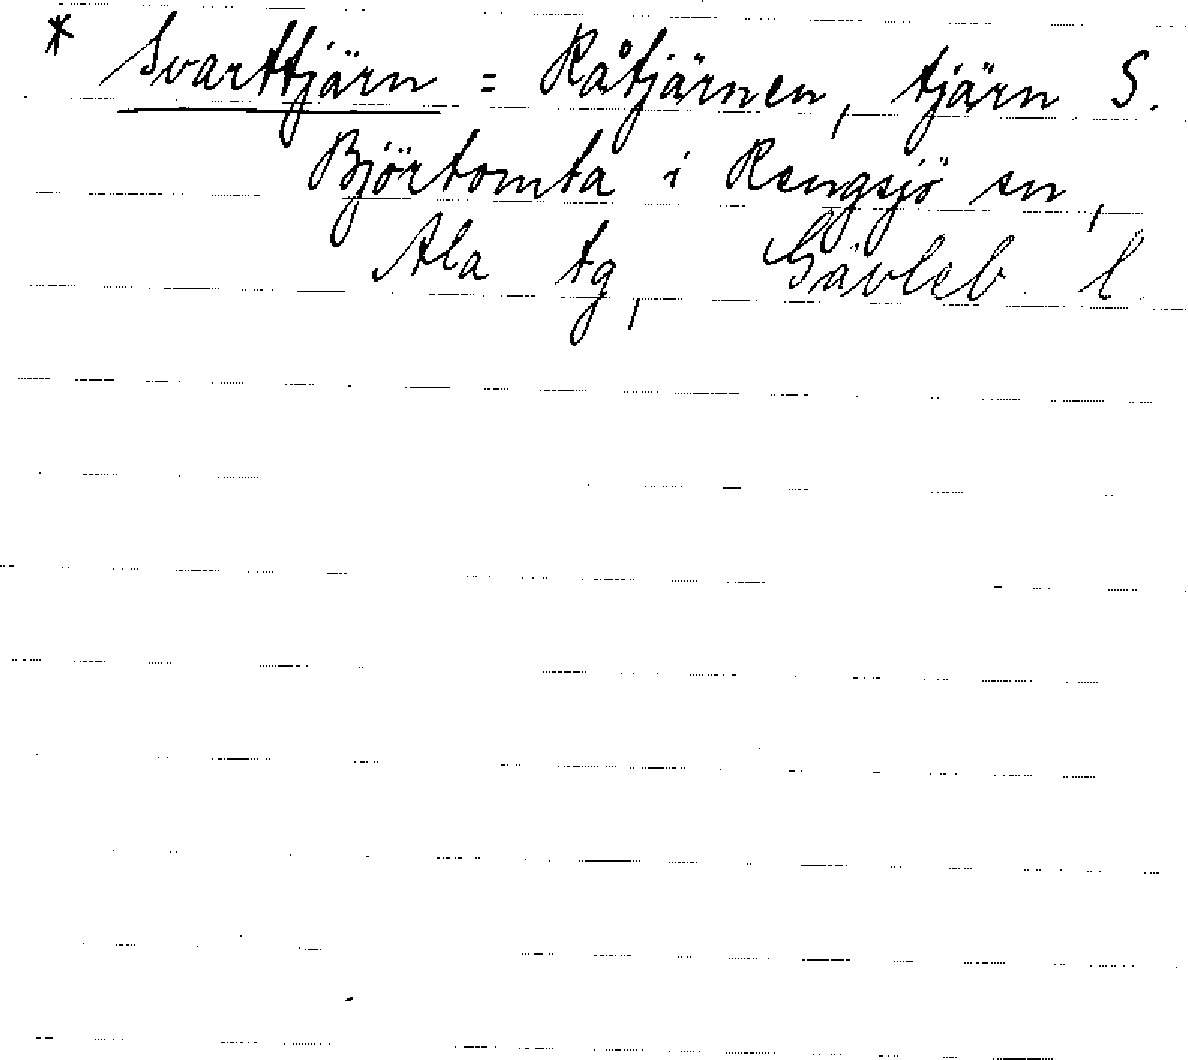 * Svarttjärn = Råtjärnen, tjärn S.
Björtomta i Rengsjö sn,
Ala tg, Gävleb l